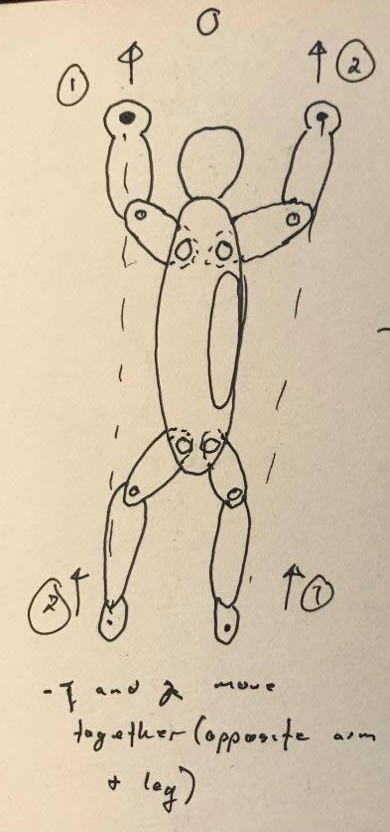 O
1
2
2
1
- 1 and 2 move
together (opposite arm
+ leg)